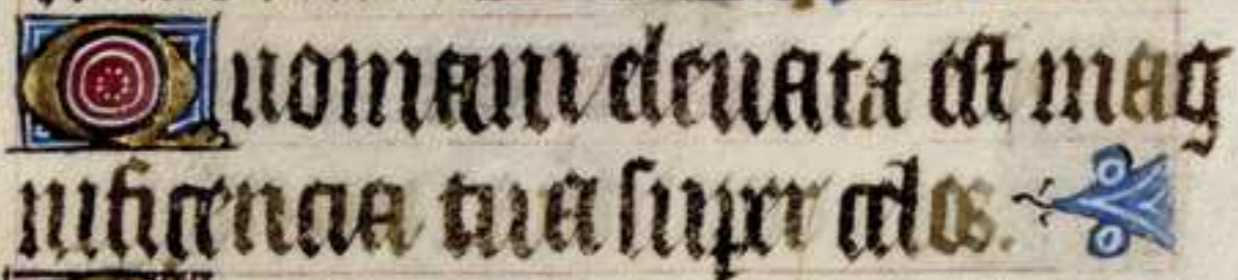 Quoniam eleuata est mag
nificencia tua super celos.